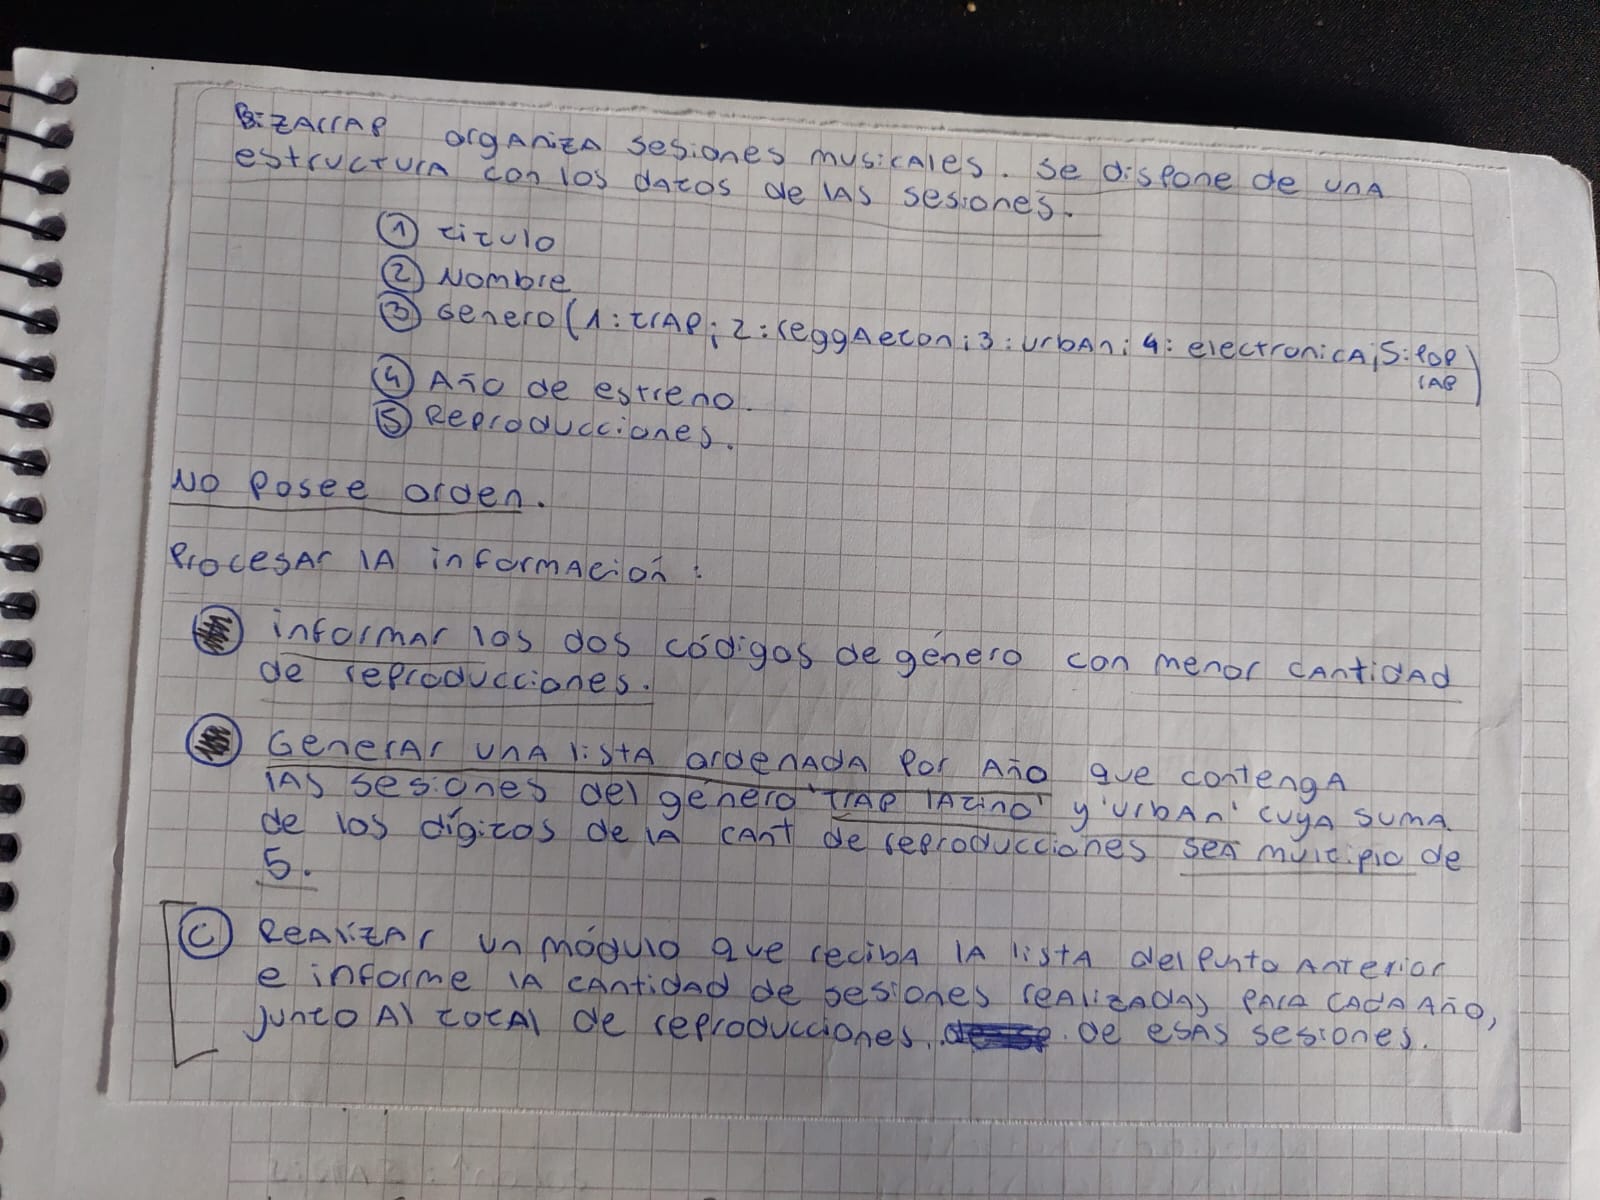 Bizarrap organiza sesiones musicales. Se dispone de una
estructura con los datos de las sesiones.
① titulo
② Nombre
③ Genero (1: trap; 2: reggaeton; 3: urban; 4: electronica; 5: pop
rap)
④ Año de estreno.
⑤ Reproducciones.
No posee orden.
Procesar la información:
informar los dos códigos de género con menor cantidad
de reproducciones.
Generar una lista ordenada por año que contenga
las sesiones del género 'trap latino' y 'urban' cuya suma
de los dígitos de la cant de reproducciones sea multiplo de
5.
Ⓒ Realizar un módulo que reciba la lista del punto anterior
e informe la cantidad de sesiones realizadas para cada año,
junto al total de reproducciones. de esas sesiones.